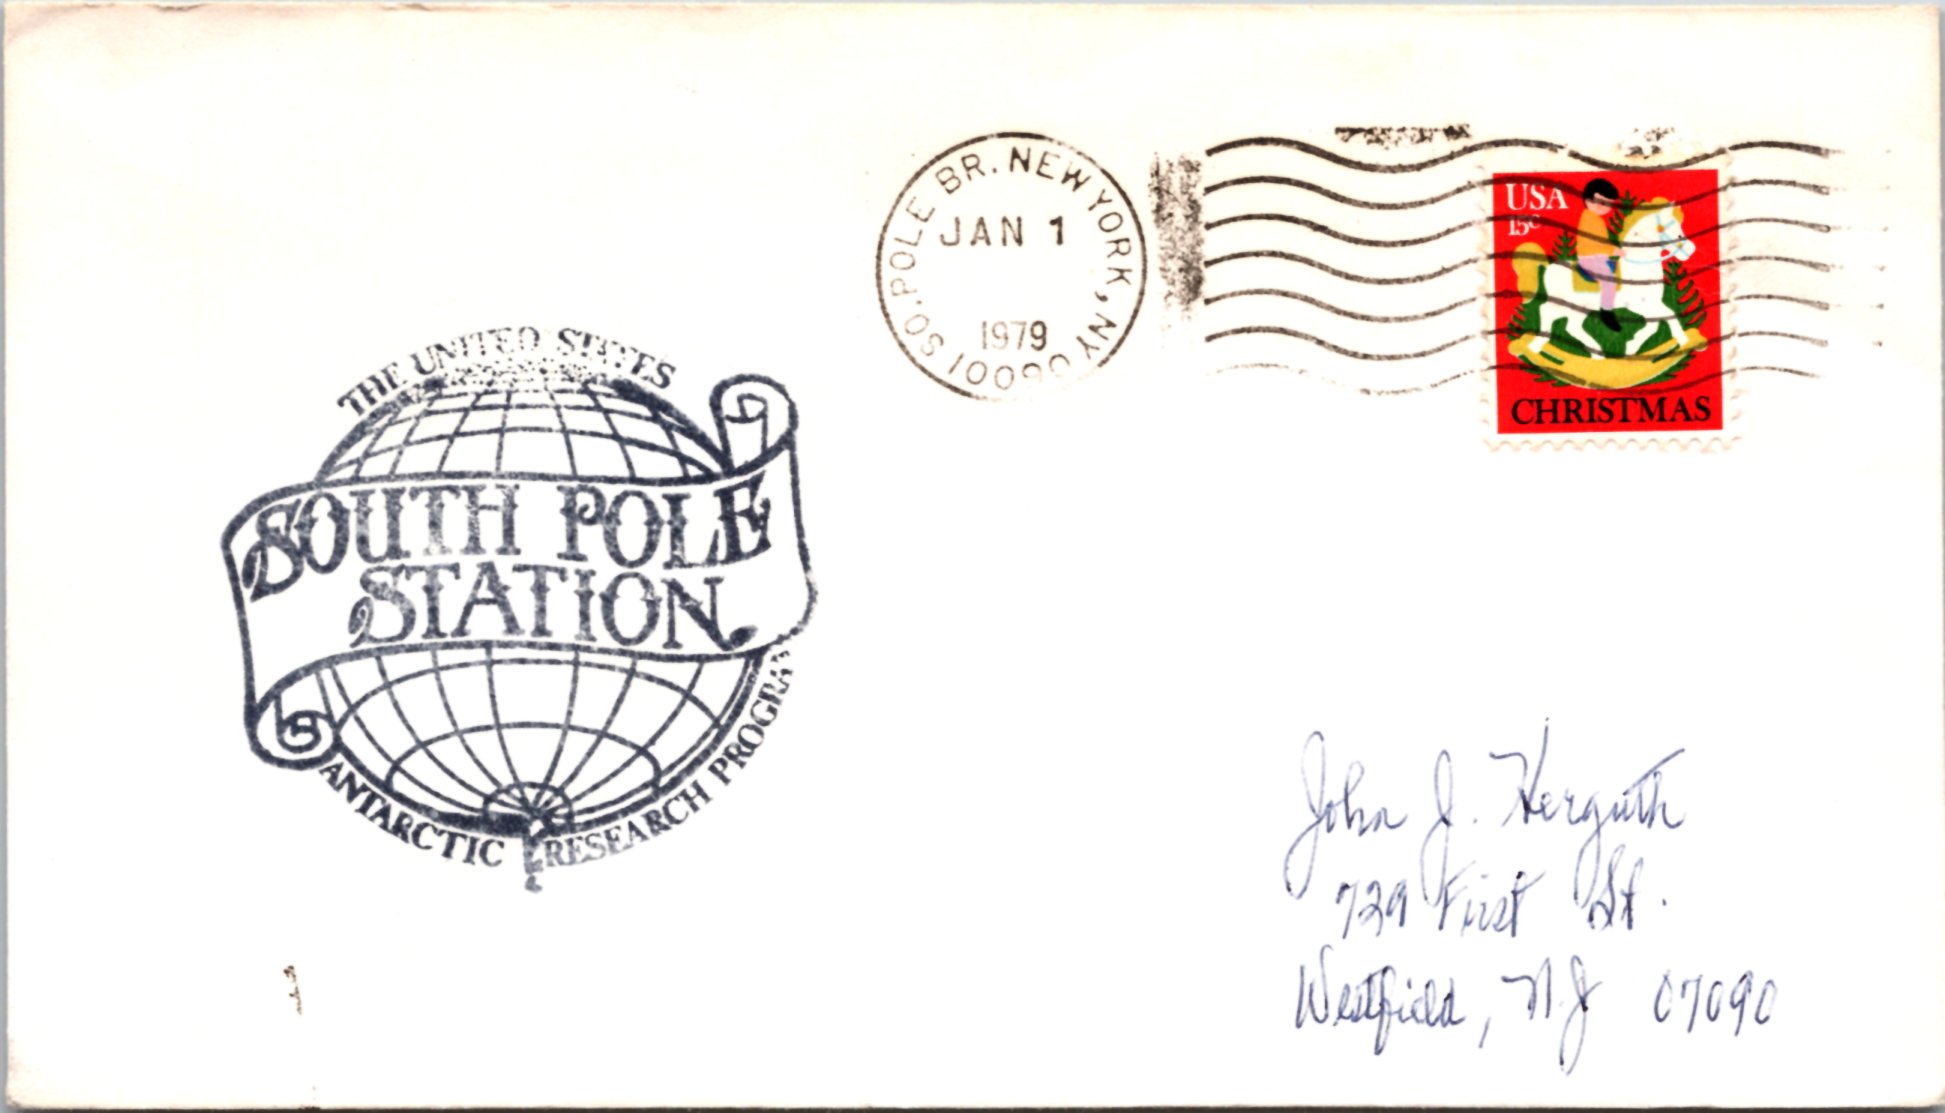 SO. POLE BR. NEW YORK, NY 09001
JAN 1
1979
USA
15c
CHRISTMAS
THE UNITED STATES
SOUTH POLE
STATION
ANTARCTIC RESEARCH PROGRAM
John J. Herguth
729 First St.
Westfield, N.J 07090